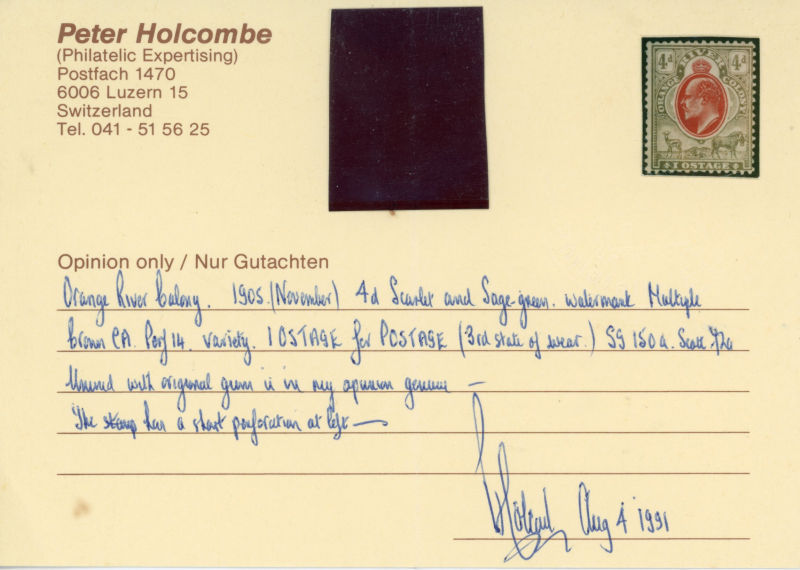 Peter Holcombe
(Philatelic Expertising)
Postfach 1470
6006 Luzern 15
Switzerland
Tel. 041 - 51 56 25
4d 4d
ORANGE RIVER COLONY
IOSTAGE
Opinion only / Nur Gutachten
Orange River Colony. 1905. (November) 4d Scarlet and Sage-green. watermark Multiple
Crown CA. Perf 14. variety. IOSTAGE for POSTAGE (3rd state of wear.) SG 150a. Scott 72a
Unused with original gum is in my opinion genuine —
The stamp has a short perforation at left —
Holcombe Aug 4 1991